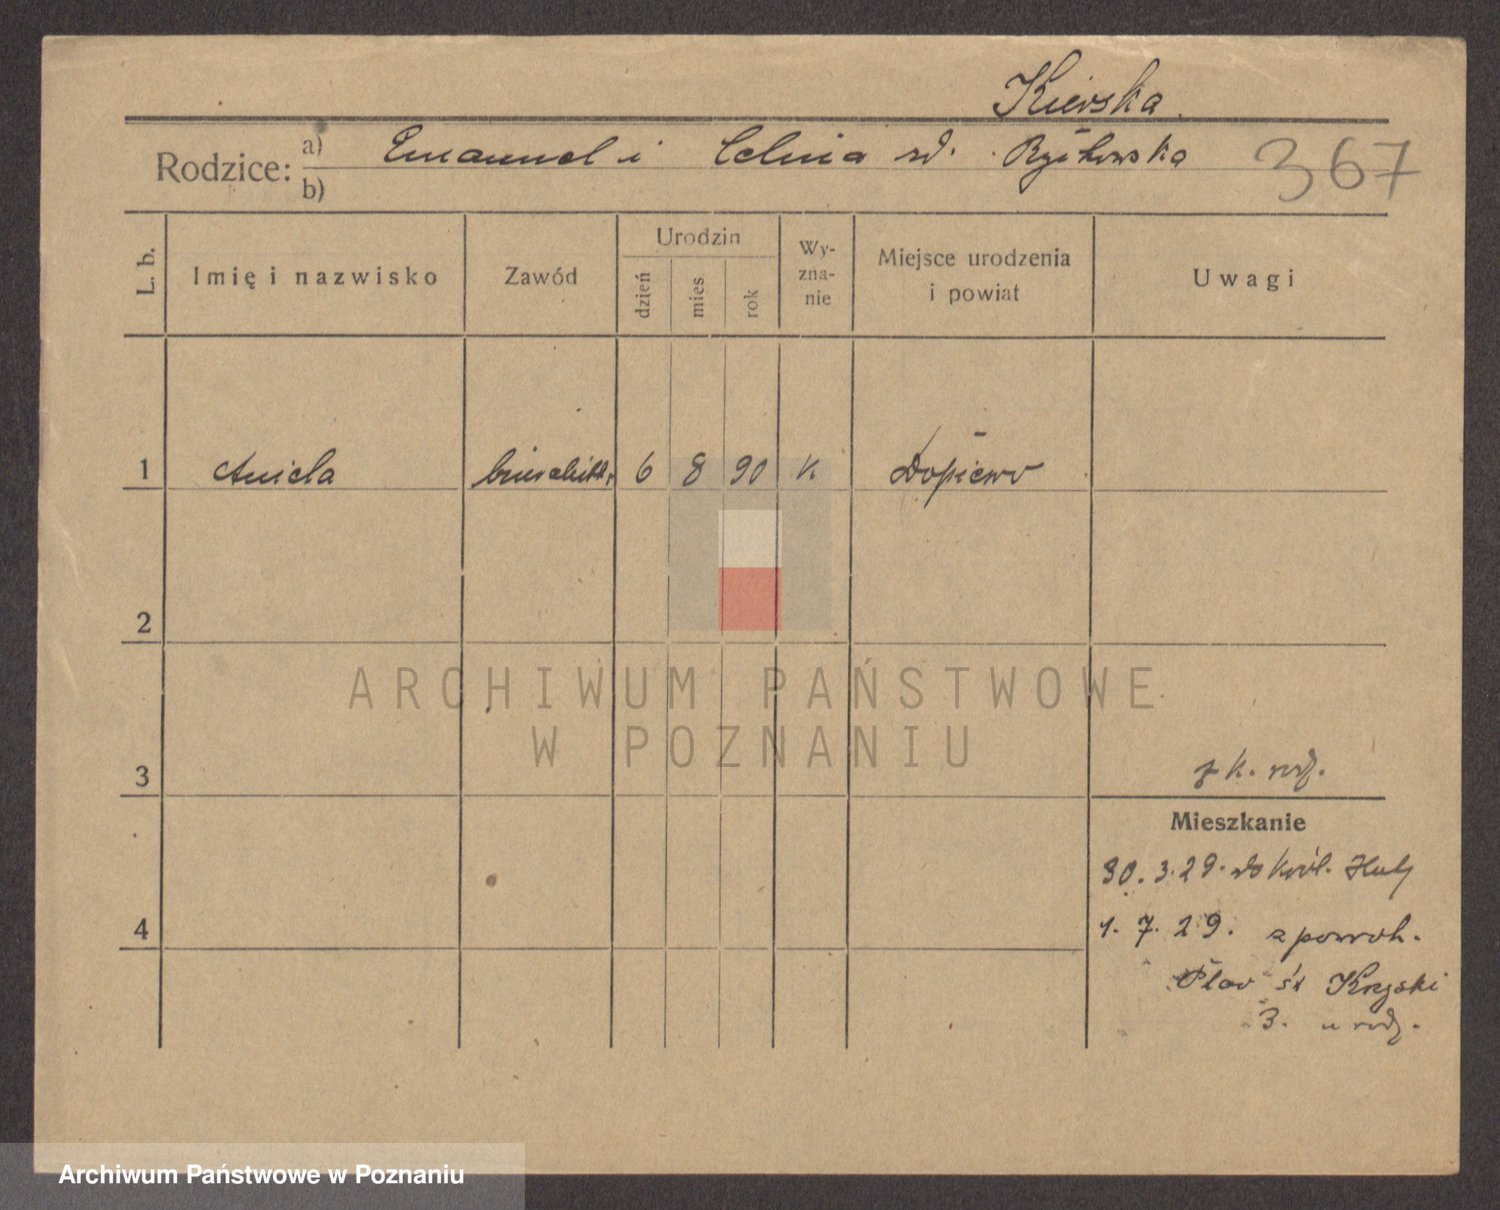 Kierska
Rodzice: a) Emanuel i Celina rd. Ryżkowska 367
b)
L. b. Imię i nazwisko Zawód Urodzin dzień mies rok Wy-zna-nie Miejsce urodzenia i powiat Uwagi
1 Aniela 6 8 90 K Dopiewo
2
3 z k. rodz.
Mieszkanie
30. 3. 29. do Król. Huty
4 1. 7. 29. z powrot.
Plac św Krzyski
3. u rodz.
ARCHIWUM PAŃSTWOWE
W POZNANIU
Archiwum Państwowe w Poznaniu